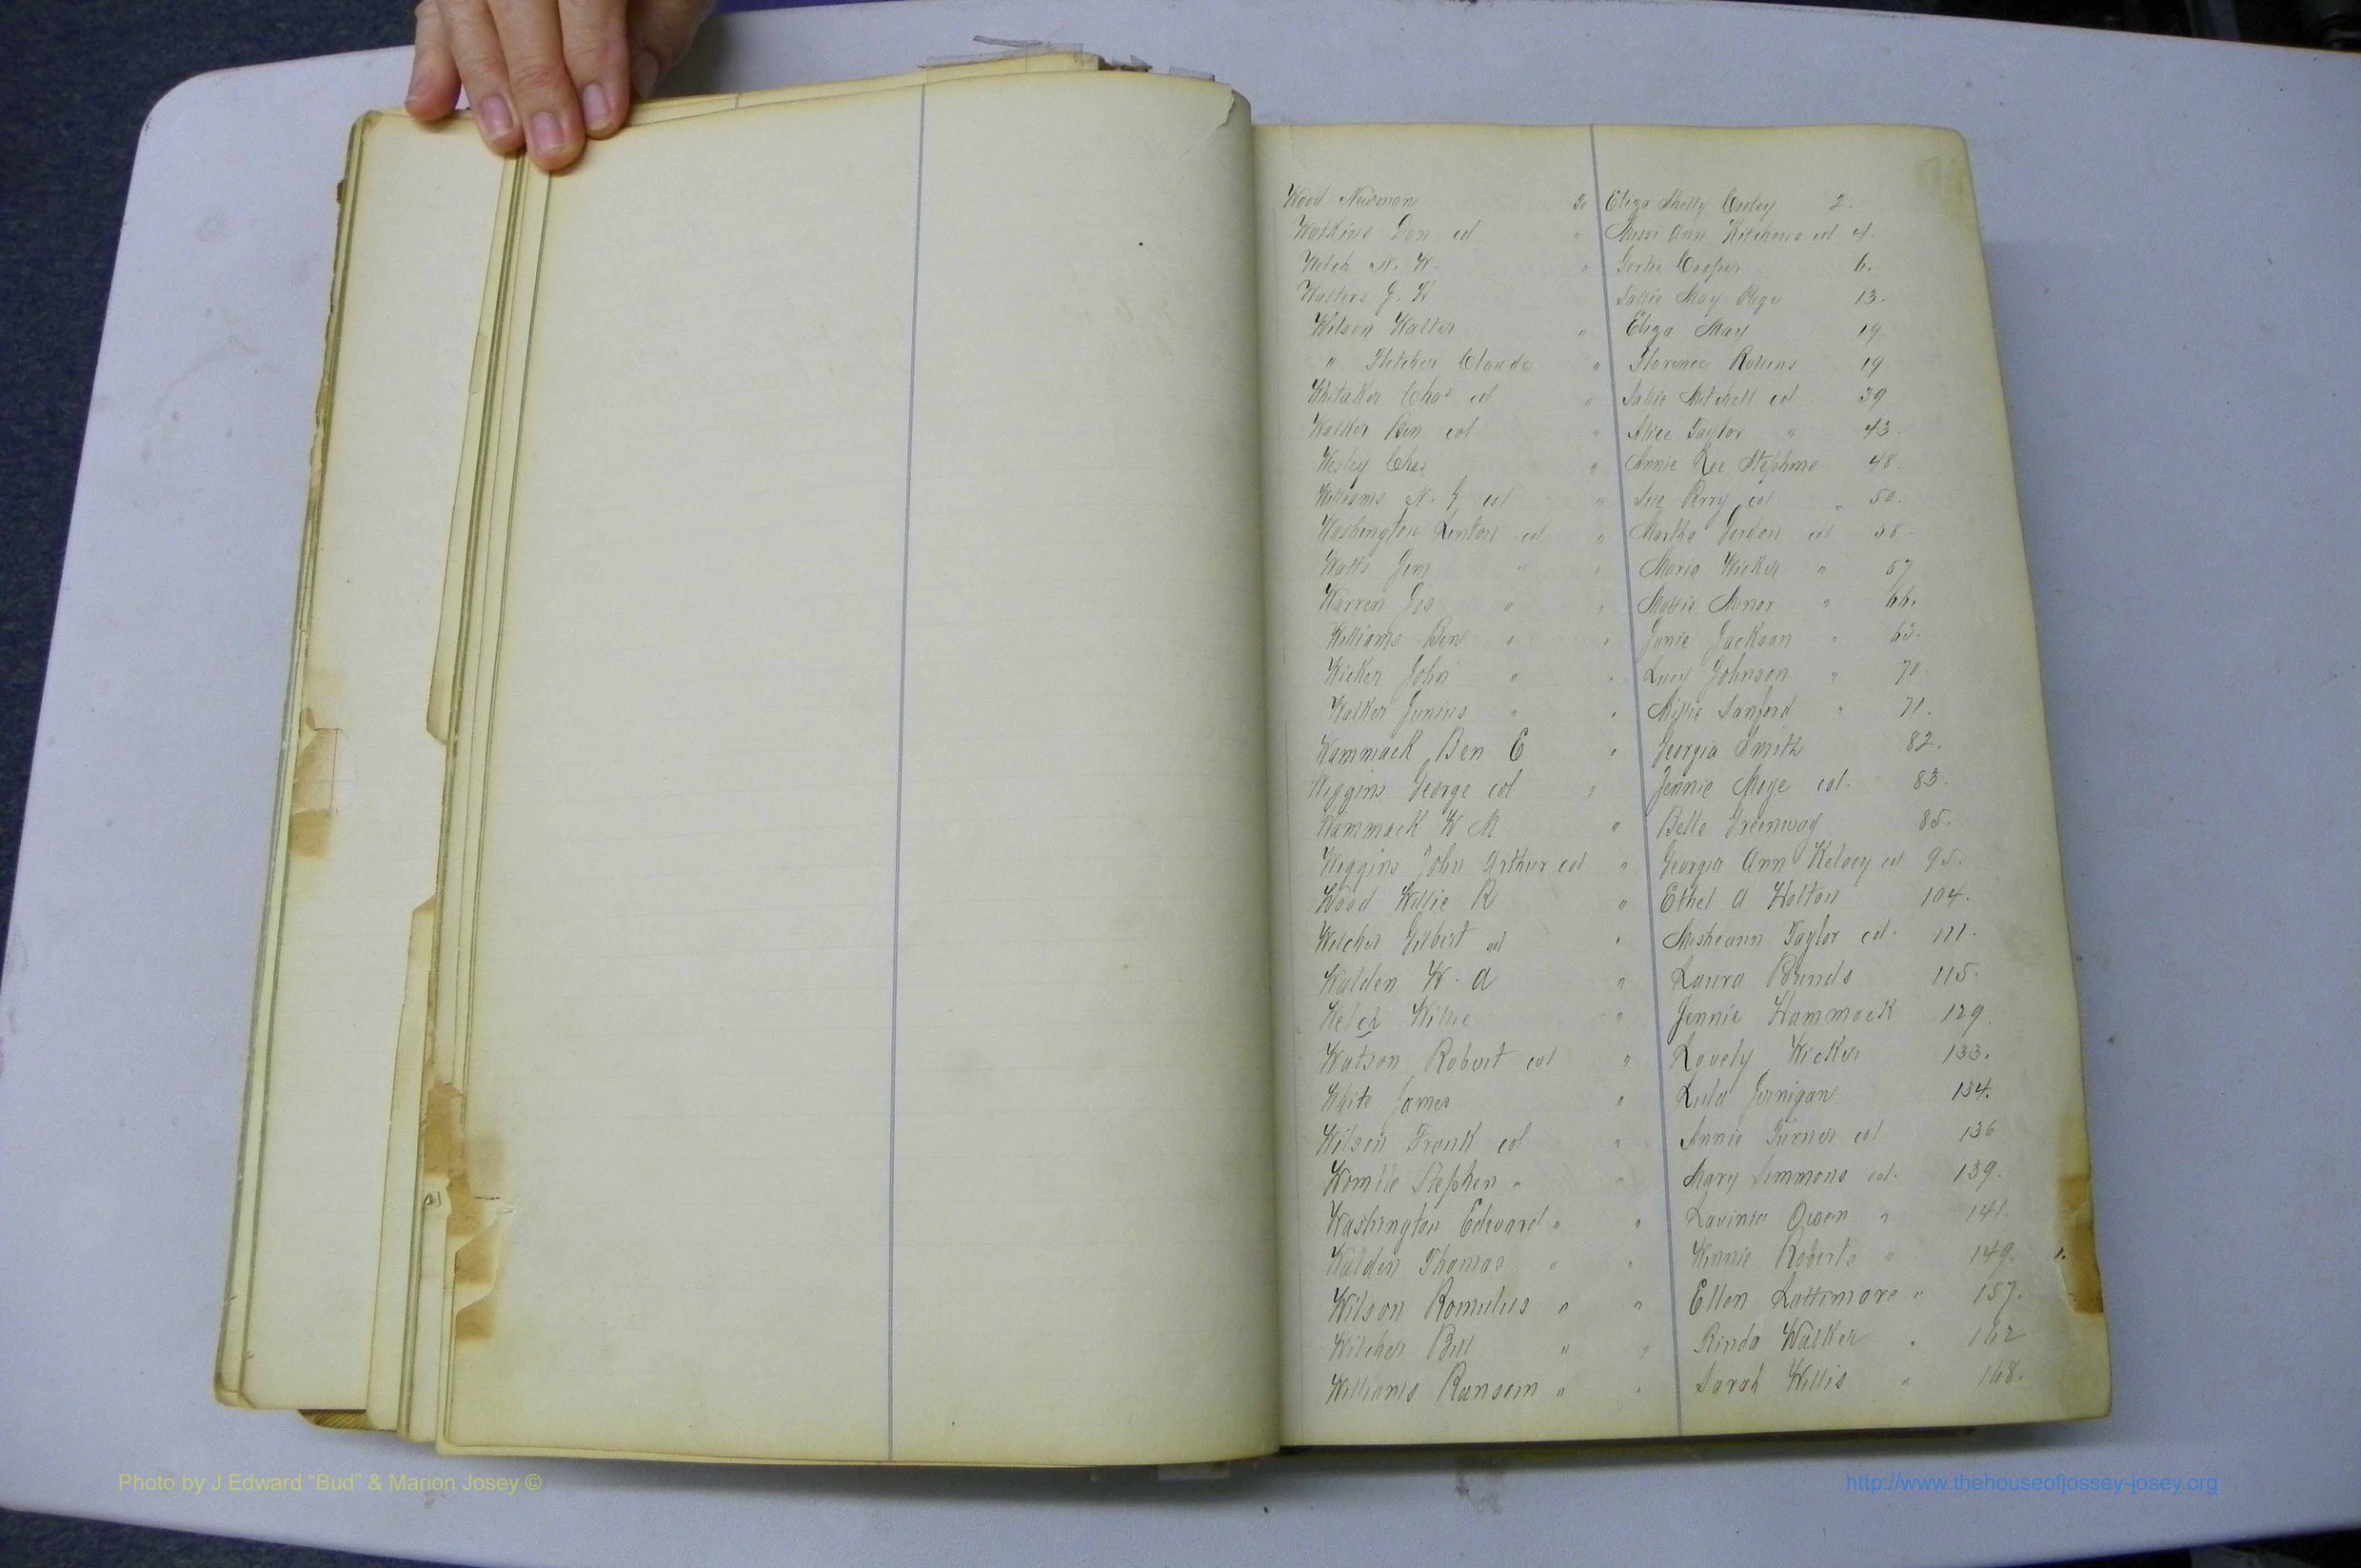 Wood Newman to Eliza Shelly Cooley 2.
Watkins Dan col " Missi Ann Kitchens col 4.
Welch N. W. " Gertie Cooper 6.
Watters J. H " Sallie May Page 13.
Wilson Walter " Eliza May 19
" Fletcher Claude " Florence Rollins 19
Whitaker Chas col " Sallie Mitchell col 39
Walker Ben col " Alice Taylor " 43
Wesley Chas " Annie Lee Stephens 48.
Williams N. G. col " Sue Perry col 50.
Washington Linton col " Martha Gordon col 58.
Watts Jim " " Maria Wicker " 57
Warren Jos " " Mattie Minor " 66.
Williams Ben " " Janie Jackson " 63.
Wicker John " " Lucy Johnson " 70.
Walker Junius " " Millie Sanford " 71.
Wammack Ben E " Georgia Smith 82.
Wiggins George col " Jennie Moye col. 83.
Wammack W M " Belle Greenway 85.
Wiggins John Arthur col " Georgia Ann Kelsey col 95.
Wood Willie R " Ethel A Holton 104.
Wilcher Gilbert col " Taylor col. 111.
Walden W. A " Laura Bunds 115.
Welch Willie " Jennie Hammock 129.
Watson Robert col " Lovely Wicker 133.
White James " Lula Jernigan 134.
Wilson Frank col " Annie Turner col 136
Womble Stephen " " Mary Simmons col. 139.
Washington Edward " " Lavinia Owen " 141.
Walden Thomas " " Winnie Roberts " 149.
Wilson Romulus " " Ellen Lattimore " 157.
Wilcher Bill " " Rinda Walker " 162
Williams Ransom " " Sarah Willis " 168.
Photo by J Edward “Bud” & Marion Josey ©
http://www.thehouseofjossey-josey.org